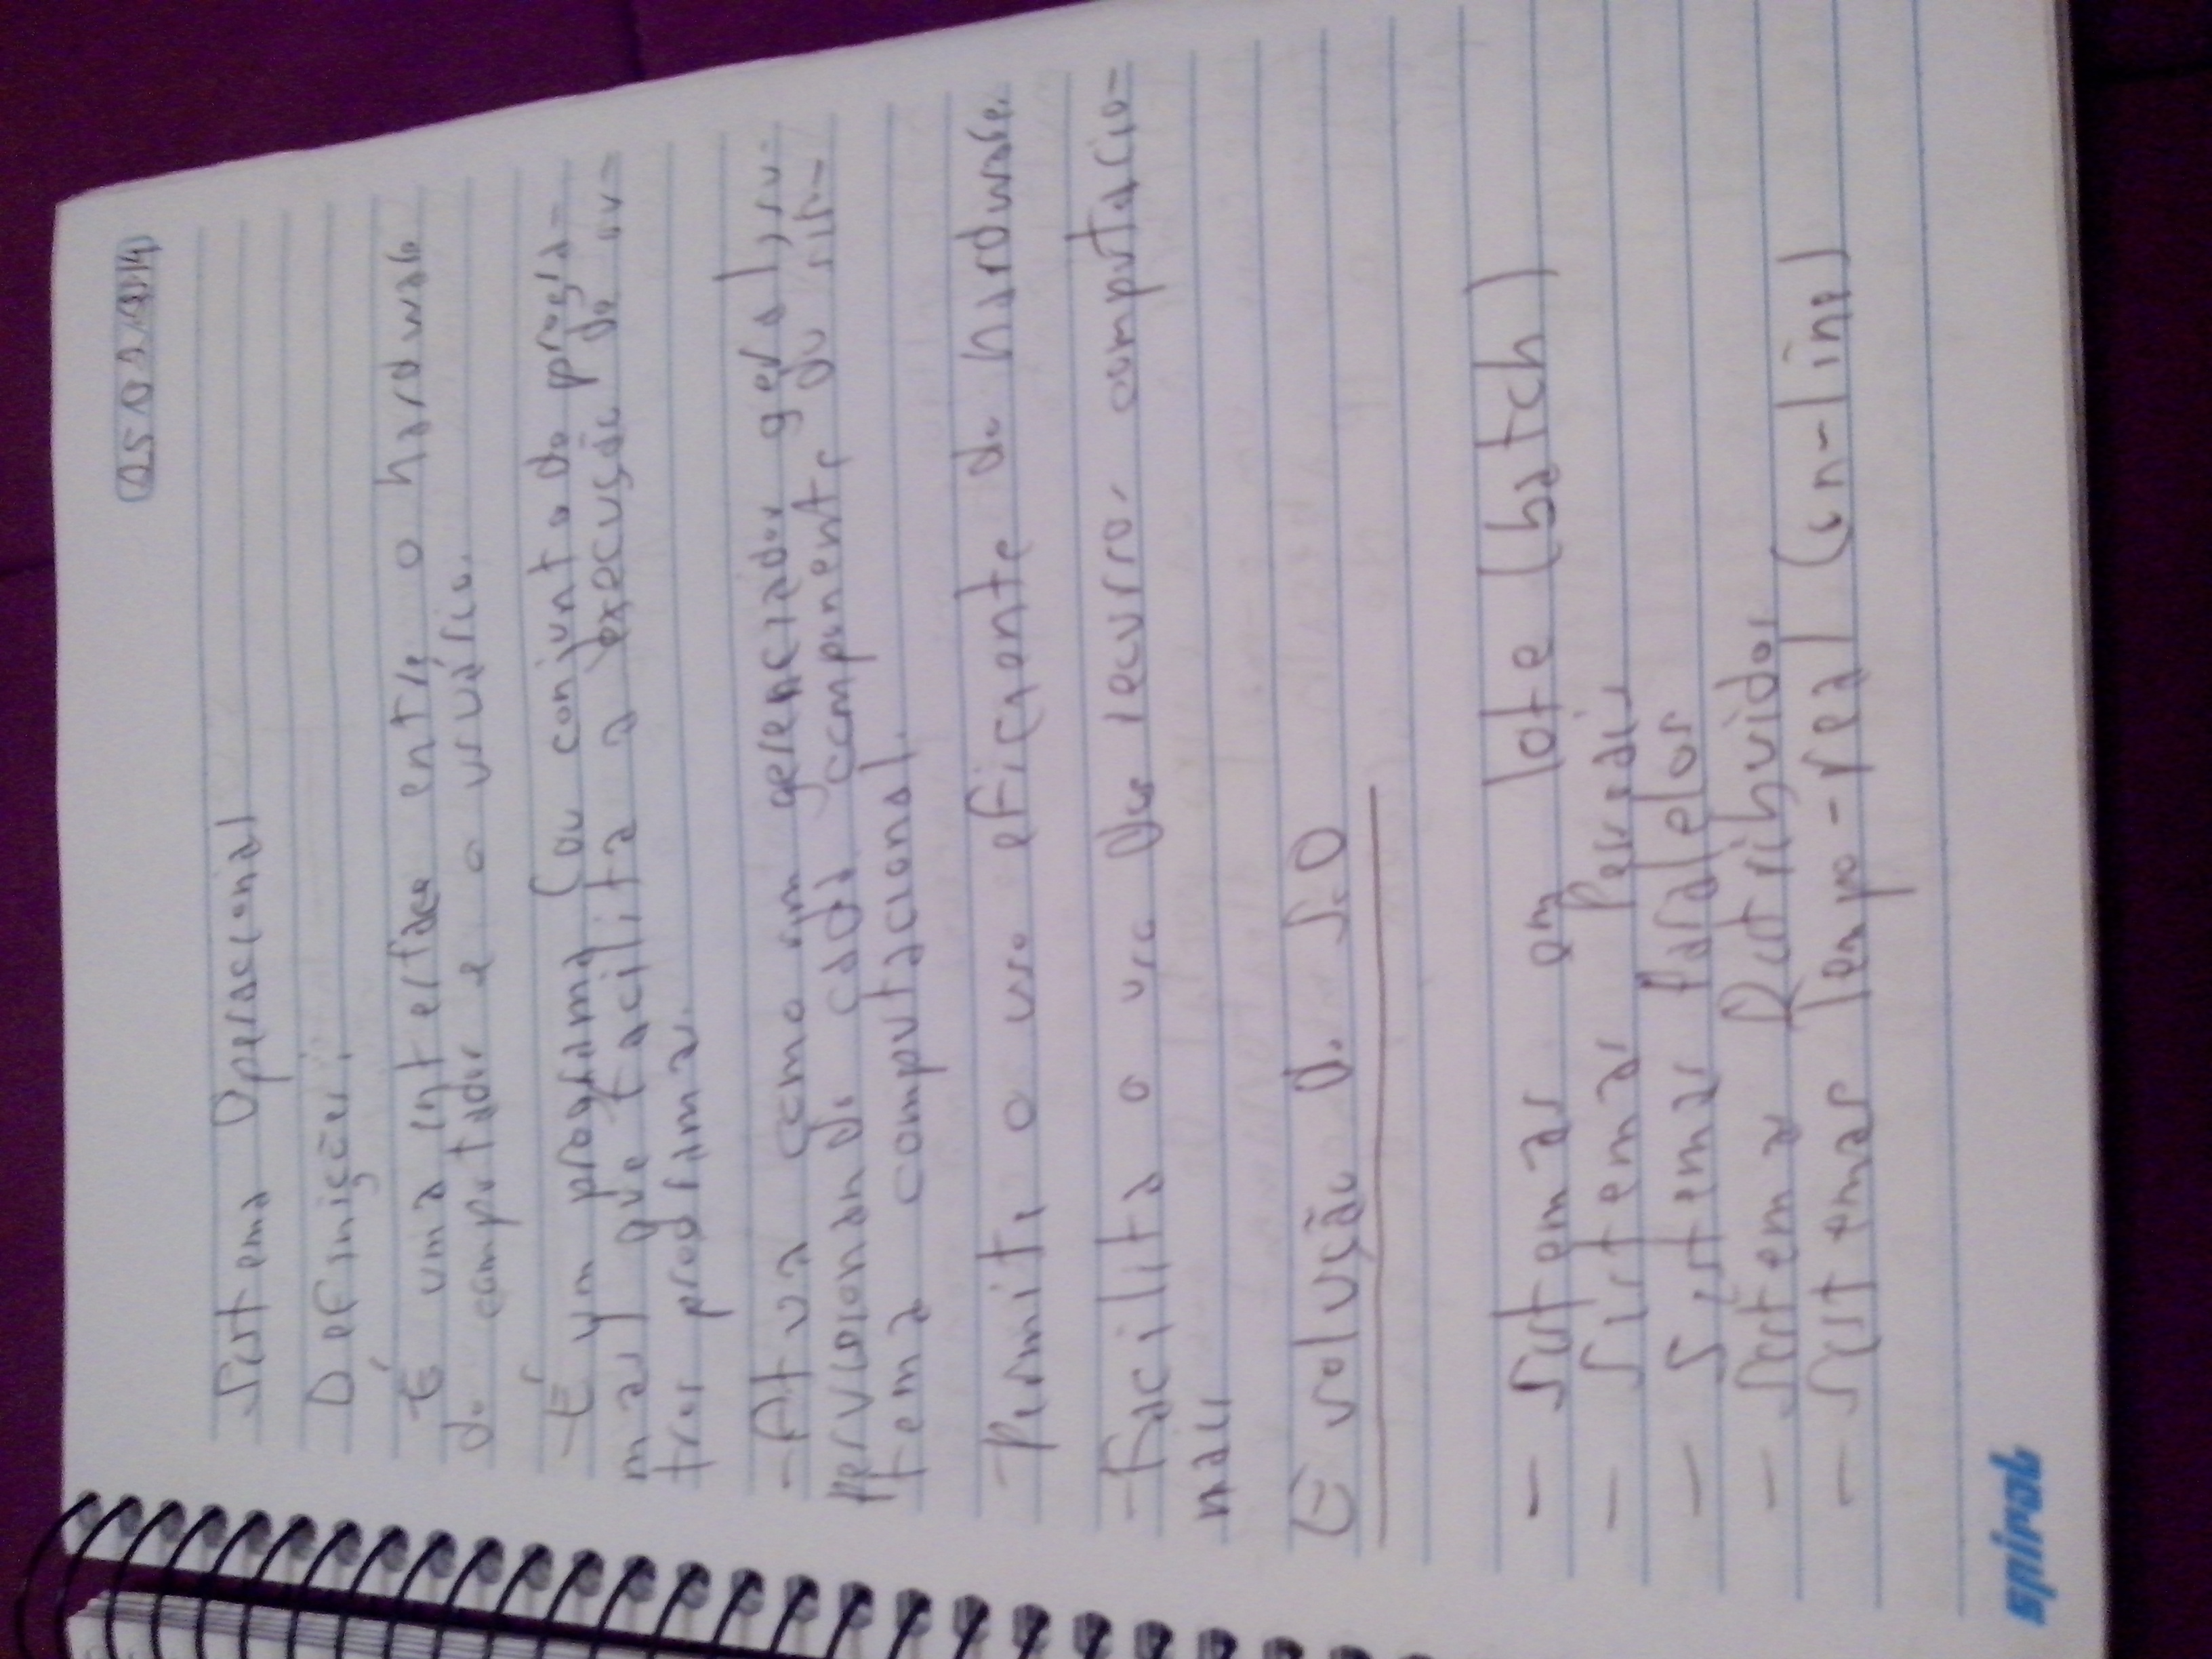 25 02 2014
Sistema Operacional
Definições:
É uma interface entre o hardware
do computador e o usuário.
-É um programa (ou conjunto de progra-
mas) que facilita a execução de ou-
tros programas.
-Atua como um gerenciador geral, su-
pervisionando cada componente do sis-
tema computacional.
-Permite o uso eficiente do hardware.
-Facilita o uso dos recursos computacio-
nais
Evolução do S.O
- Sistemas em lote (batch)
- Sistemas Pessoais
- Sistemas Paralelos
- Sistemas Distribuidos
- Sistemas Tempo-real (on-line)
spiral